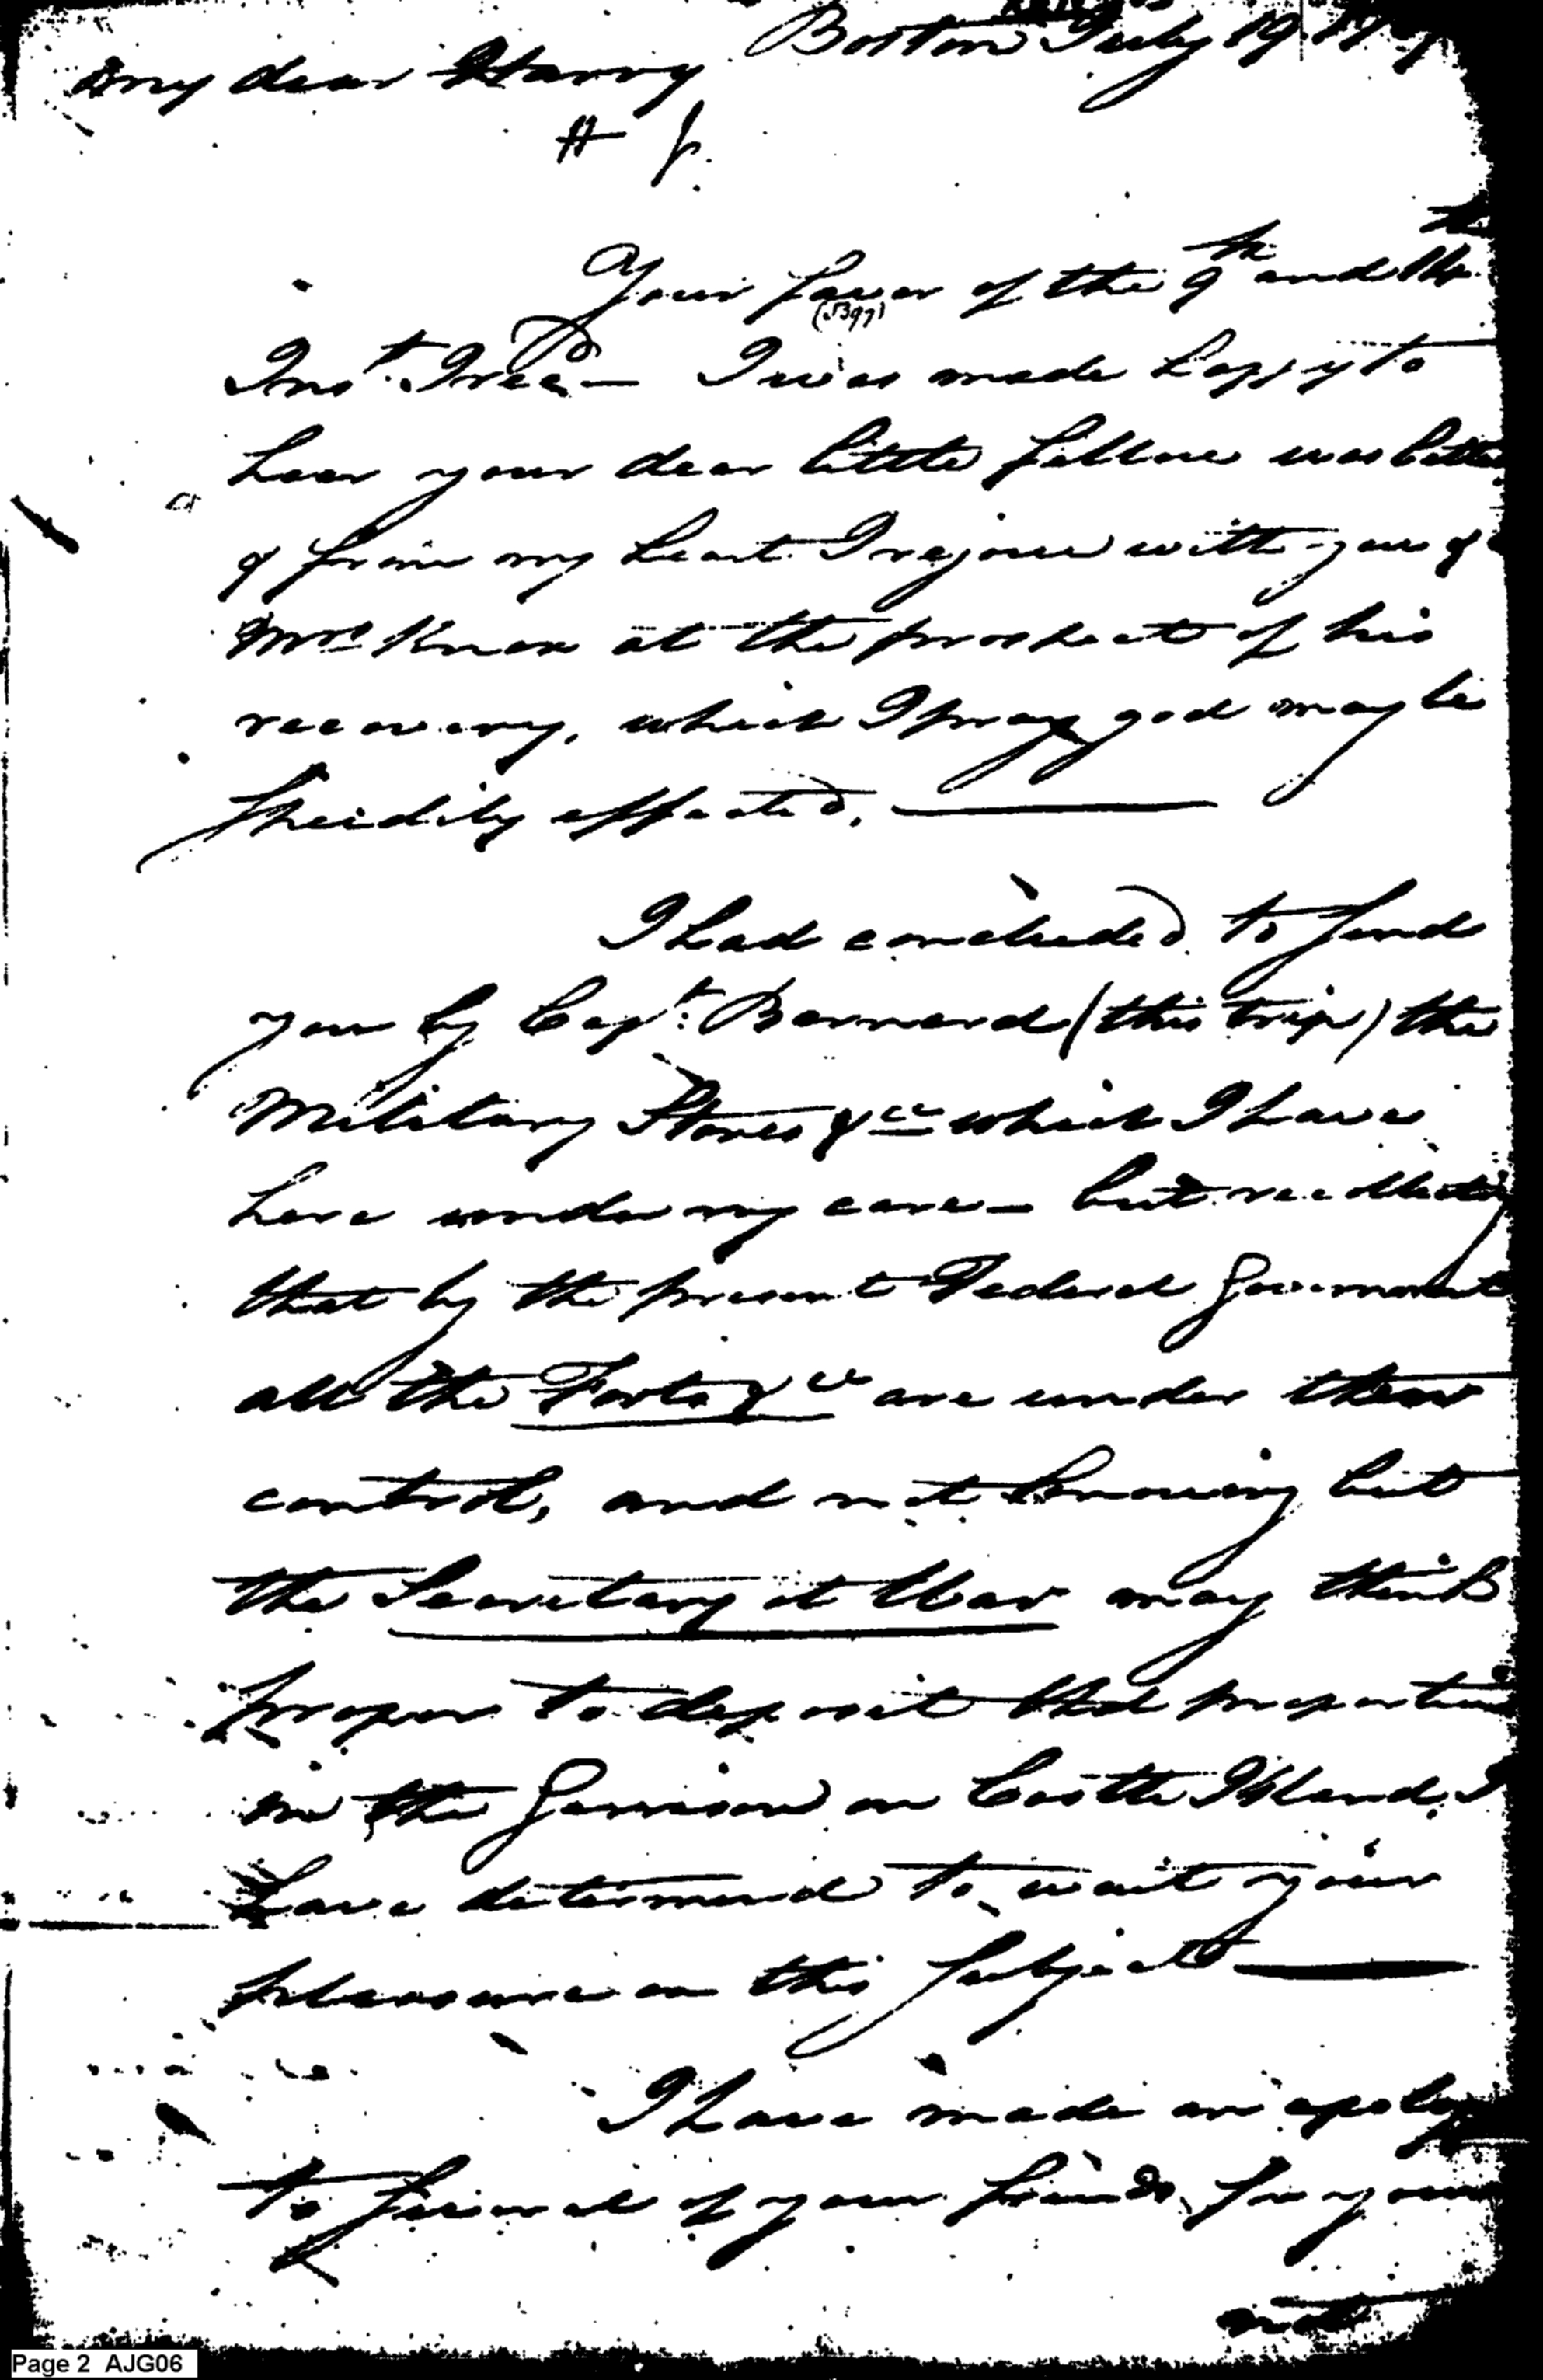 Boston July 19 17
My dear Harry
H J.
Your favor of the 9th and 14th
(5397)
Inst. I recd — I was made happy to
hear your dear little fellow was better
& from my heart I rejoice with you &
Mrs Knox at the prospect of his
recovery, which I pray god may be
speedily effected. —
I had concluded to send
you by Capt. Barnard (this trip) the
Military Stores &ca which I have
here under my care — but recollecting
that by the present Federal Government
all the Forts &ca are under their
controul, and not knowing but
the Secretary at War may think
proper to deposit that proportion
in the Garrison on Castle Island, I
have determined to wait your
pleasure on this subject —
I have made an apology
to several of your friends, for your
not
Page 2 AJG06